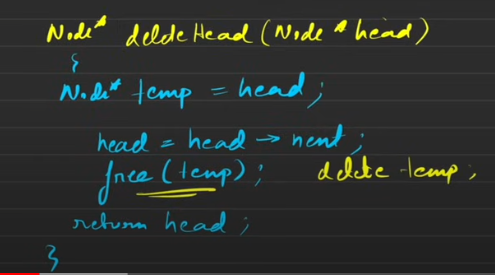 Node* deleteHead(Node* head)
{
Node* temp = head;
head = head → next;
free(temp); delete temp;
return head;
}